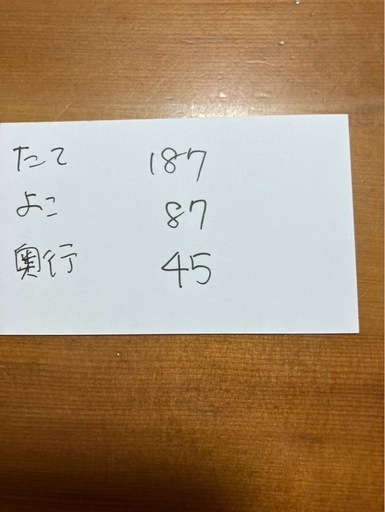 たて 187
よこ 87
奥行 45